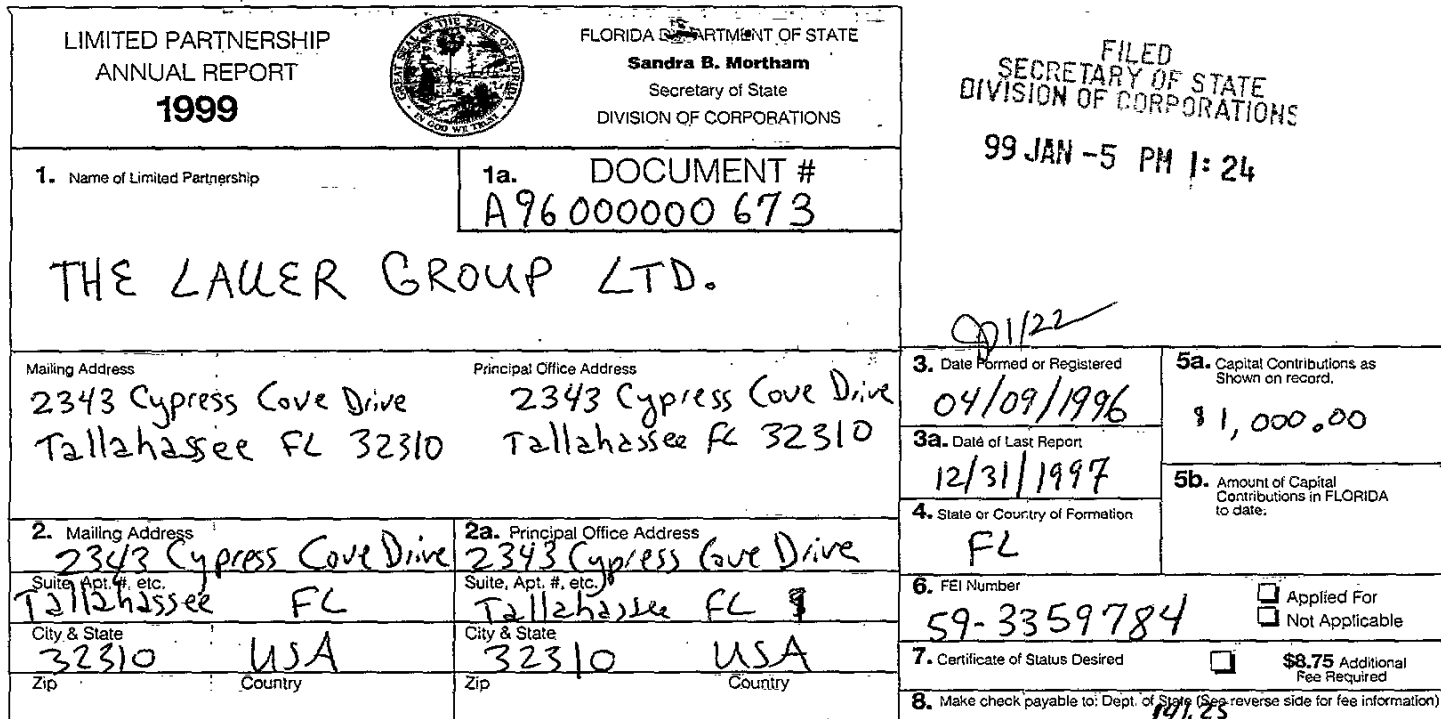 LIMITED PARTNERSHIP
ANNUAL REPORT
1999
GREAT SEAL OF THE STATE OF FLORIDA
IN GOD WE TRUST
FLORIDA DEPARTMENT OF STATE
Sandra B. Mortham
Secretary of State
DIVISION OF CORPORATIONS
FILED
SECRETARY OF STATE
DIVISION OF CORPORATIONS
99 JAN -5 PM 1:24
1. Name of Limited Partnership
1a. DOCUMENT #
A96000000673
THE LAUER GROUP LTD.
1/22
Mailing Address
2343 Cypress Cove Drive
Tallahassee FL 32310
Principal Office Address
2343 Cypress Cove Drive
Tallahassee FL 32310
3. Date Formed or Registered
04/09/1996
3a. Date of Last Report
12/31/1997
4. State or Country of Formation
FL
5a. Capital Contributions as
Shown on record.
$1,000.00
5b. Amount of Capital
Contributions in FLORIDA
to date:
2. Mailing Address
2343 Cypress Cove Drive
Suite, Apt. #, etc.
Tallahassee FL
City & State
32310 USA
Zip Country
2a. Principal Office Address
2343 Cypress Cove Drive
Suite, Apt. #, etc.
Tallahassee FL
City & State
32310 USA
Zip Country
6. FEI Number
59-3359784
Applied For
Not Applicable
7. Certificate of Status Desired
$8.75 Additional
Fee Required
8. Make check payable to: Dept. of State (See reverse side for fee information)
191.25